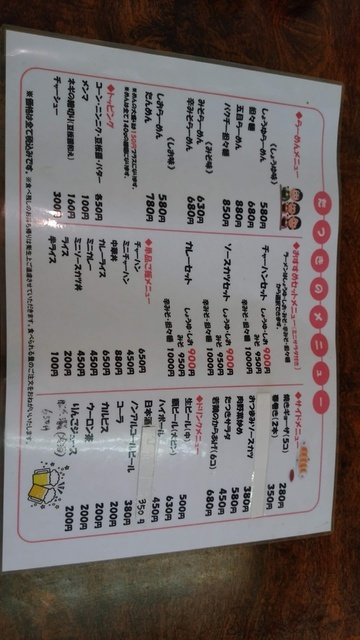 たつきのメニュー
◆らーめんメニュー
(しょうゆ味)
しょうゆらーめん 580円
担々麺 680円
五目らーめん 880円
パクチー担々麺 850円
(みそ味)
みそらーめん 630円
辛みそらーめん 680円
(しお味)
しおらーめん 580円
たんめん 780円
※お人の大盛りは150円プラスになります。
◆トッピング
コーン・ニンニク・豆板醤・バター
各50円
メンマ 100円
ネギの細切り(豆板醤和え) 160円
チャーシュー 300円
◆おすすめセットメニュー(ミニサラダ付き)
ラーメンはしょうゆ・しお・みそ・辛みそ・担々麺
から選べます。
チャーハンセット しょうゆ・しお 900円
みそ 950円
辛みそ・担々麺 1000円
ソースカツセット しょうゆ・しお 900円
みそ 950円
辛みそ・担々麺 1000円
カレーセット しょうゆ・しお 900円
みそ 950円
辛みそ・担々麺 1000円
◆単品ご飯メニュー
チャーハン 650円
ミニチャーハン 450円
中華丼 880円
カレーライス 650円
ミニカレー 450円
ミニソースカツ丼 450円
ライス 200円
半ライス 100円
◆サイドメニュー
焼きギョーザ(5コ) 280円
春巻き(2本) 350円
おつまみソースカツ 380円
肉野菜炒め 580円
たつきサラダ 450円
若鶏のからあげ(5コ) 680円
◆ドリンクメニュー
生ビール(中) 500円
瓶ビール(大ビン) 630円
ハイボール 450円
日本酒 350円
ノンアルコールビール 380円
コーラ 200円
カルピス 200円
ウーロン茶 200円
りんごジュース 200円
※価格は全て税込みです。